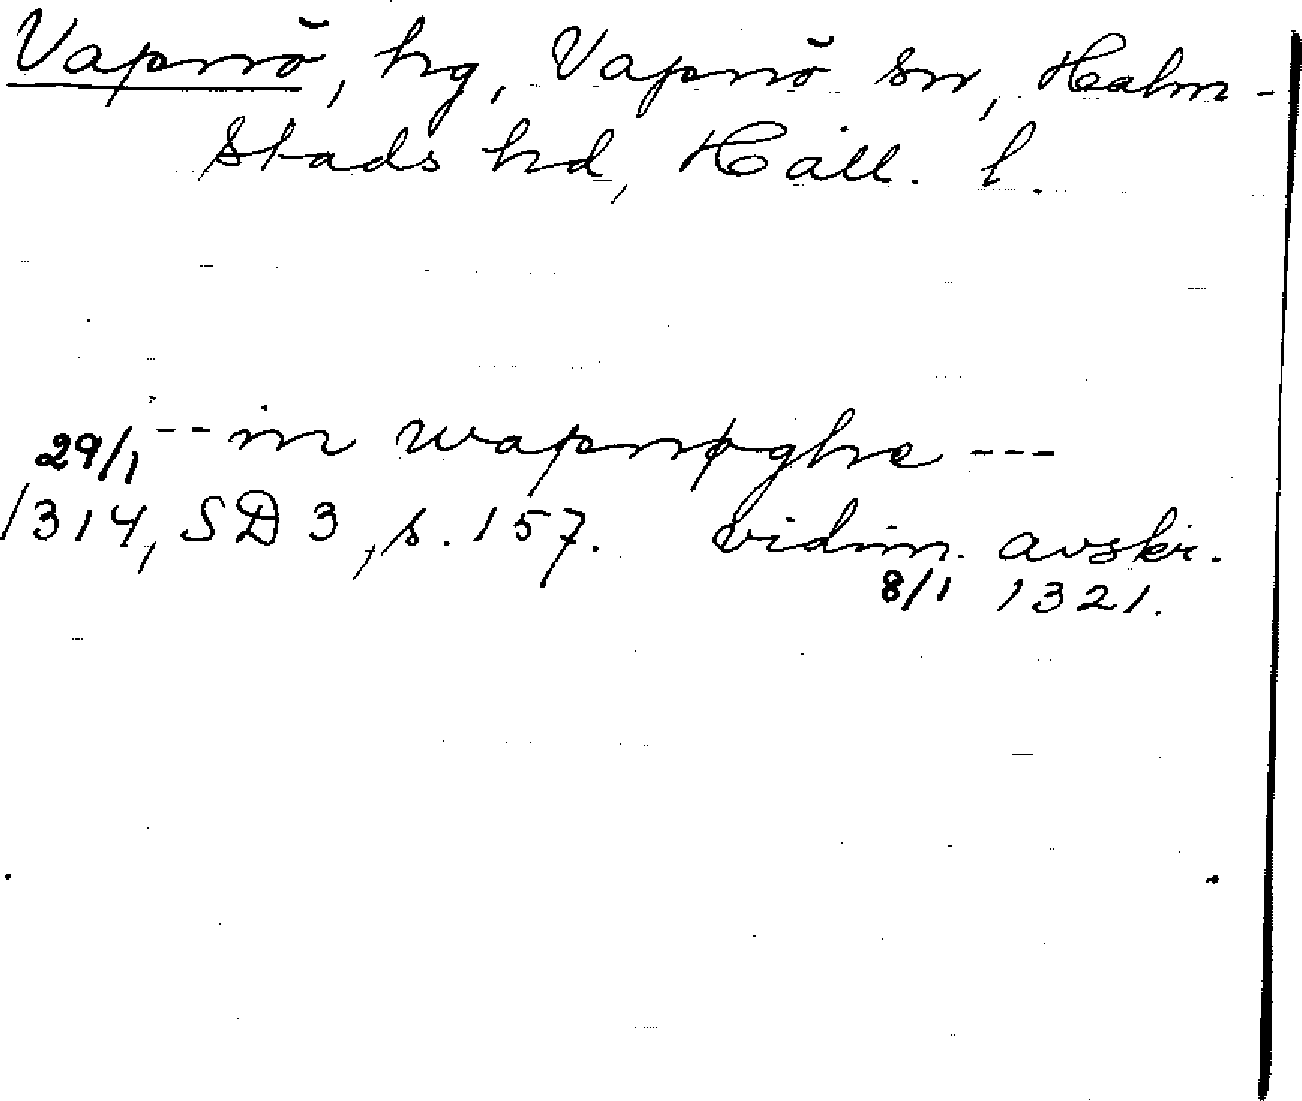 Vapnö, hg, Vapnö sn, Halm-
stads hd, Hall. l.
-- in wapnøghæ ---
29/1
1314, SD 3, s. 157. vidim. avskr.
8/1 1321.